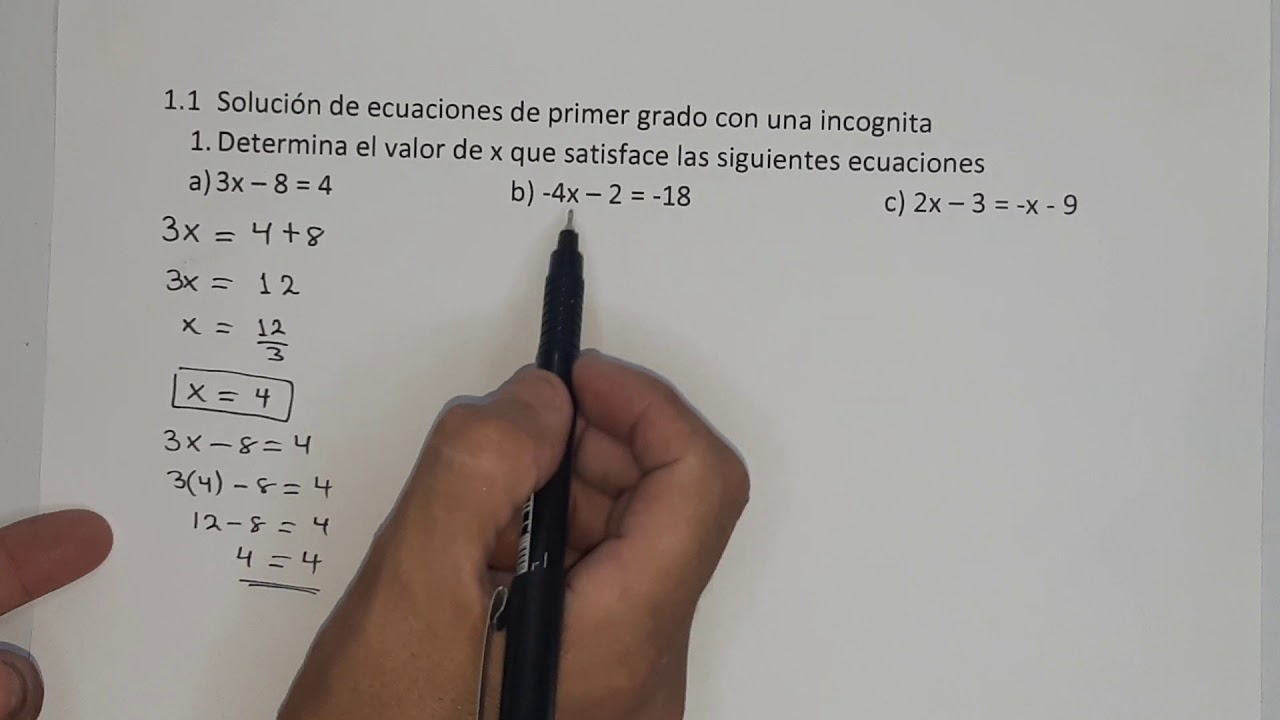 1.1 Solución de ecuaciones de primer grado con una incognita
1. Determina el valor de x que satisface las siguientes ecuaciones
a) 3x – 8 = 4
b) -4x – 2 = -18
c) 2x – 3 = -x - 9
3x = 4+8
3x = 12
x = 12/3
x = 4
3x – 8 = 4
3(4) – 8 = 4
12 – 8 = 4
4 = 4